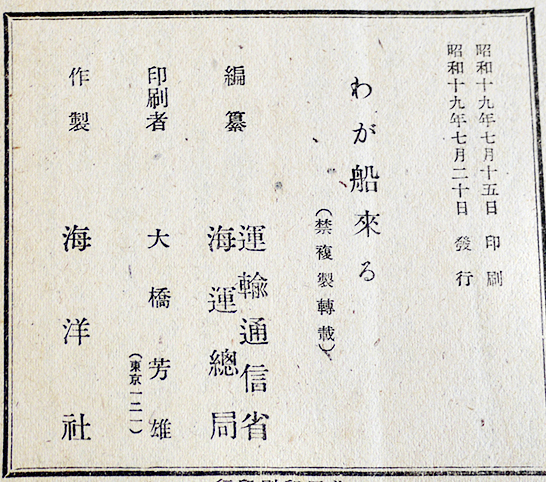 昭和十九年七月十五日 印刷
昭和十九年七月二十日 發行
わが船來る
(禁複製轉載)
編纂 運輸通信省
海運總局
印刷者 大橋芳雄
(東京一二一)
作製 海洋社